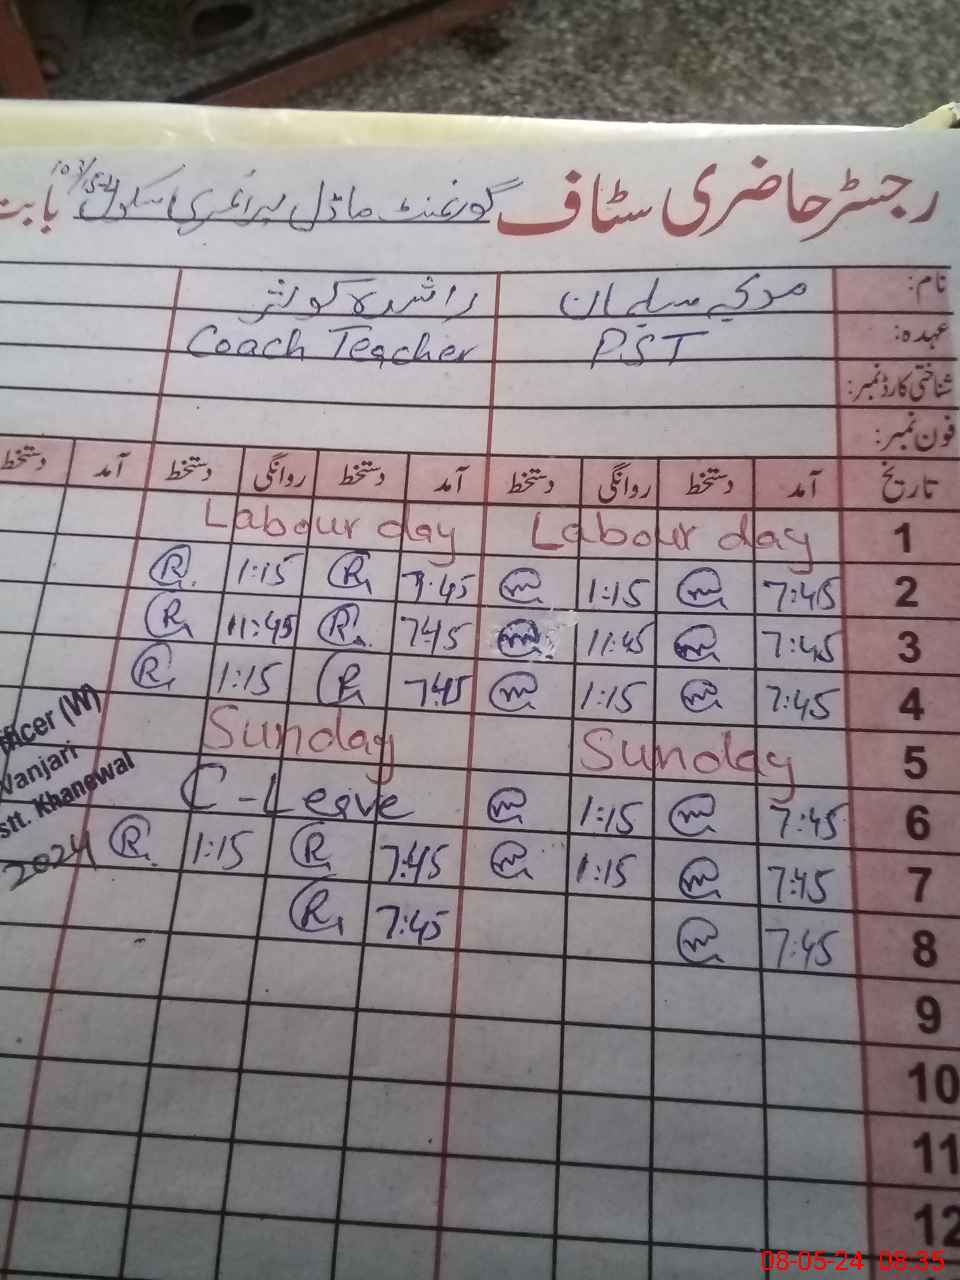 رجسٹر حاضری سٹاف گورنمنٹ ماڈل پرائمری سکول بابت
نام: سلمان راشدہ کوثر
عہدہ: P.S.T Coach Teacher
شناختی کارڈ نمبر:
فون نمبر:
تاریخ آمد دستخط روانگی دستخط آمد دستخط روانگی دستخط آمد دستخط
1 Labour day Labour day
2 7:45 m 1:15 m 7:45 R 1:15 R
3 7:45 m 11:45 m 7:45 R 11:45 R
4 7:45 m 1:15 m 7:45 R 1:15 R
5 Sunday Sunday
6 7:45 m 1:15 m C-Leave
7 7:45 m 1:15 m 7:45 R 1:15 R
8 7:45 m 7:45 R
9
10
11
12
fficer (W)
Vanjari
stt. Khanewal
2024
08-05-24 08:35